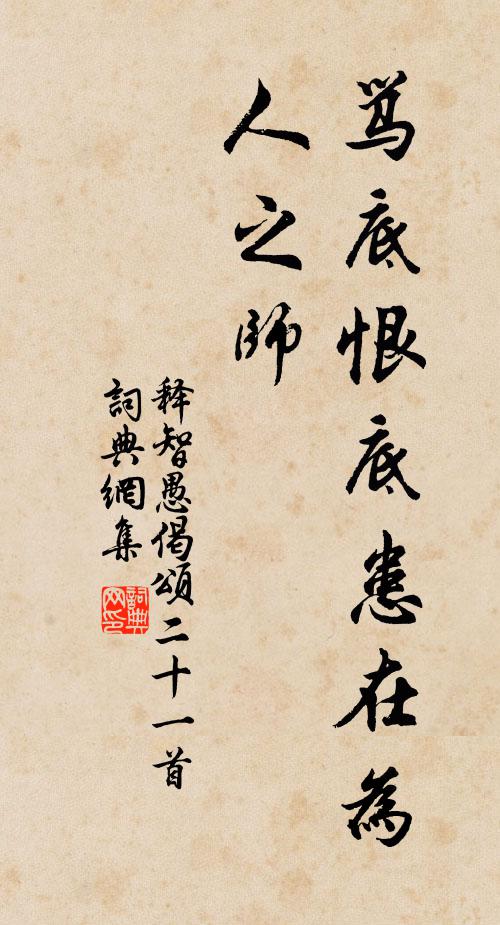 骂底恨底患在為
人之師
释智愚偈頌二十一首
詞典網集
詞典
网印